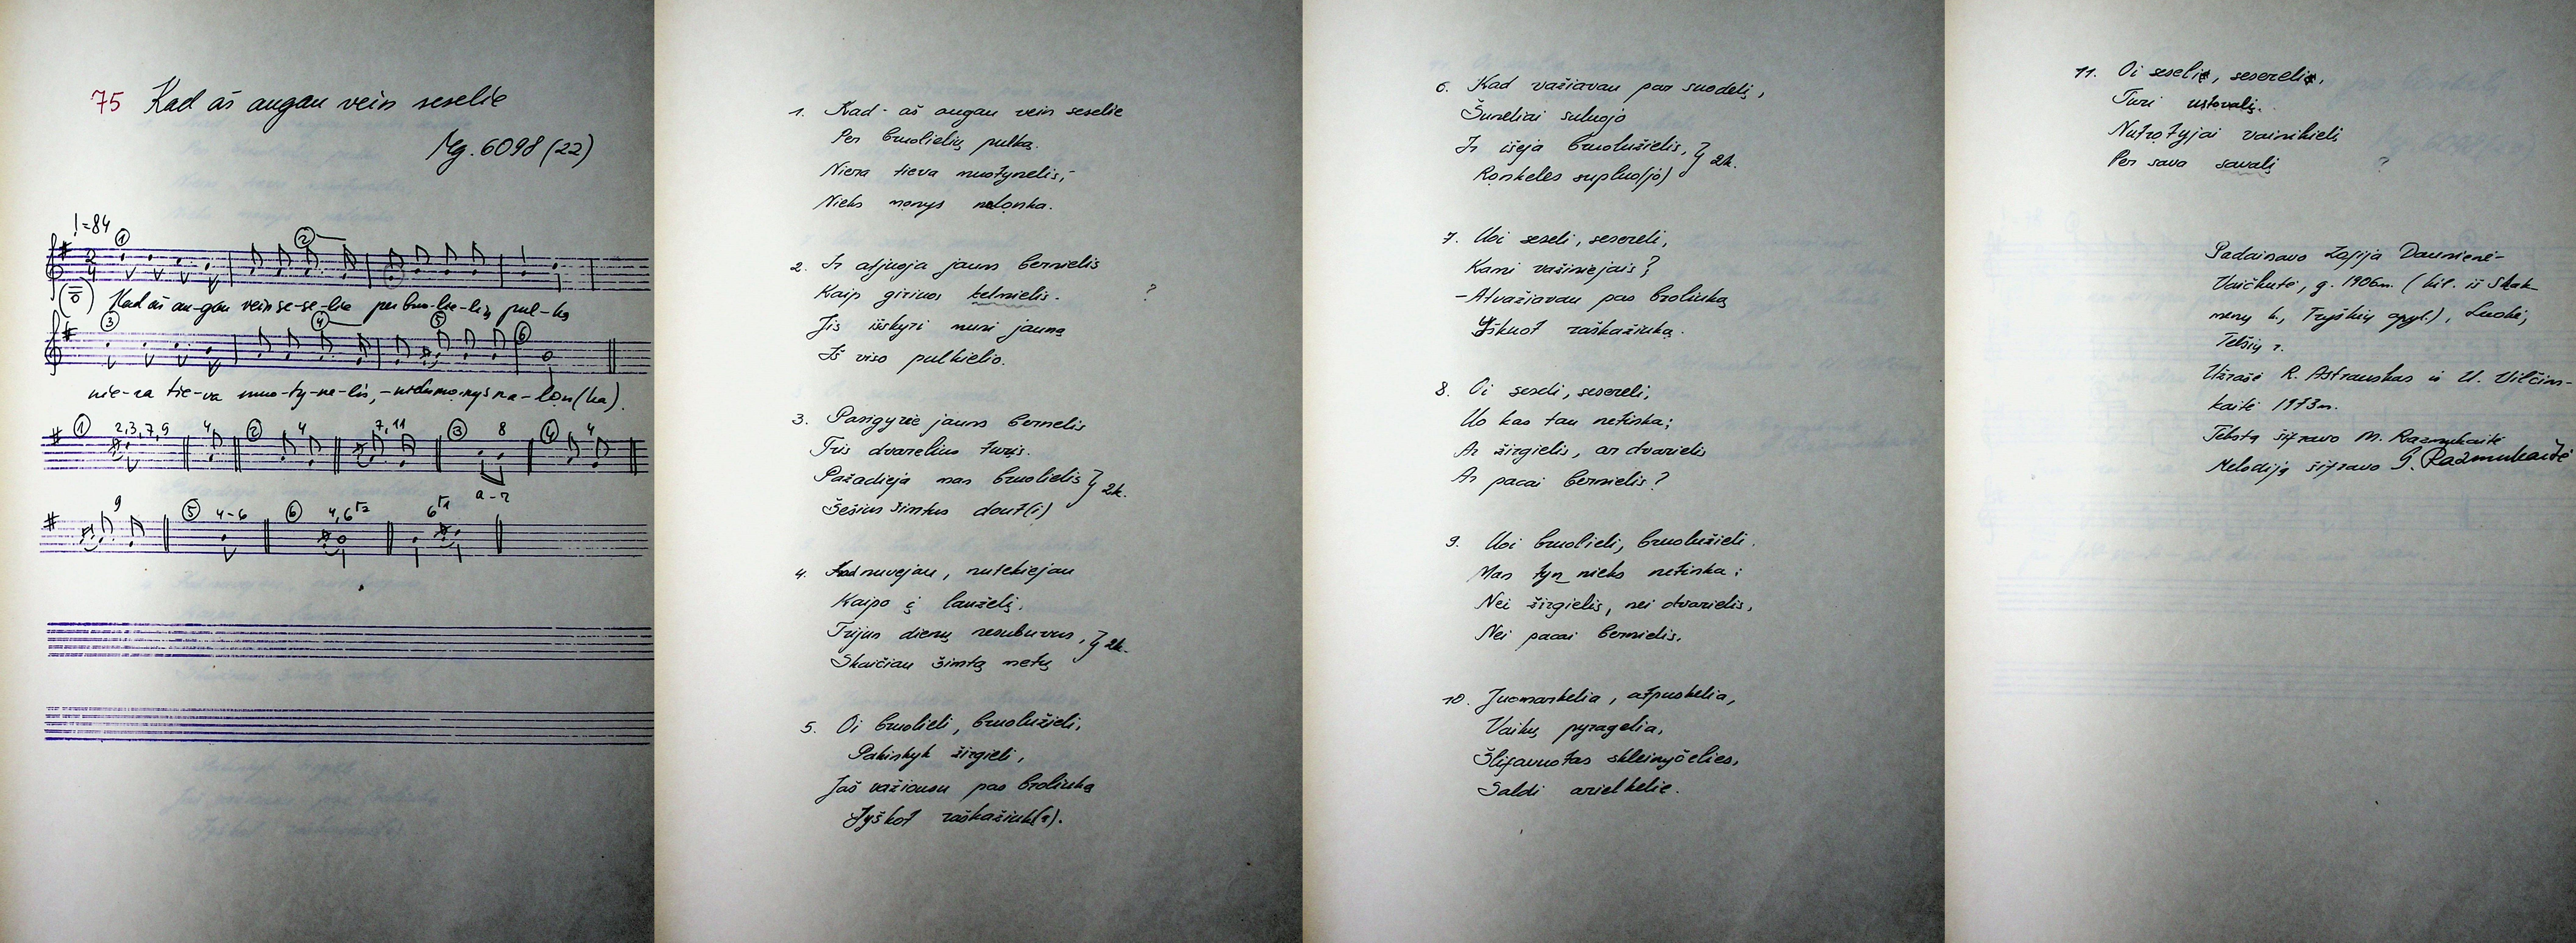 75 Kad aš augau vein seselie
Mg. 6098 (22)
! = 84
2 4
1 2
Kad aš au-gau vein se-se-lie per bruo-lie-lių pul-ką
3 4 5 6
nie-ra tie-va muo-ty-ne-lis,
1 2,3,7,9 4 2 4 7,11 3 8 4 4
a-z
9 5 4-6 6 4,6
1. Kad aš augau vein seselie
Per bruolielių pulką.
Niera tieva muotynelis,
Nieks monys nalonka.
2. Ir atjuoja jauns bernielis
Kaip girinos kelmielis. ?
Jis išskyri muni jauną
Iš viso pulkielio.
3. Pasigyrie jauns bernelis
Tris dvarelius turis.
Pažadieja man bruolielis } 2k.
Šešius šimtus dout(i)
4. Kad nuvejau, nutekiejau
Kaipo į lauželį,
Trijus dienų nesubuvus, } 2k.
Skaičiau šimtą metų
5. Oi bruolieli, bruolužieli,
Pakinkyk žirgieli,
Jaš važiousu pas broliuką
Jyškot raškažiuk(a).
6. Kad važiavau par suodelį,
Šuneliai suluojo
Ir išeja bruolužielis, } 2k.
Ronkeles supluo(jo)
7. Uoi seseli, sesereli,
Kami važiniejais?
- Atvažiavau pas broliuką
Iškuot raškažiuką.
8. Oi seseli, sesereli,
Uo kas tau netinka;
Ar žirgielis, ar dvarielis
Ar pacai bernielis?
9. Uoi bruolieli, bruolužieli.
Man tyn nieks netinka;
Nei žirgielis, nei dvarielis,
Nei pacai bernielis.
10. Juomarkelia, atpuskelia,
Vaikų pyragelia,
Šlifavuotas skleinyčelies,
Saldi arielkelie.
11. Oi seselie, seserelie,
Turi ustovalį.
Nutrotyjai vainikielį
Per sava savalį ?
Padainavo Zofija Daunienė-
Vaičkutė, g. 1906m. (kil. iš Skak-
menų k., Tryškių apyl.), Luokė,
Telšių r.
Užrašė R. Astrauskas ir U. Vilčins-
kaitė 1973m.
Tekstą šifravo M. Razmukaitė
Melodiją šifravo G. Razmukaitė